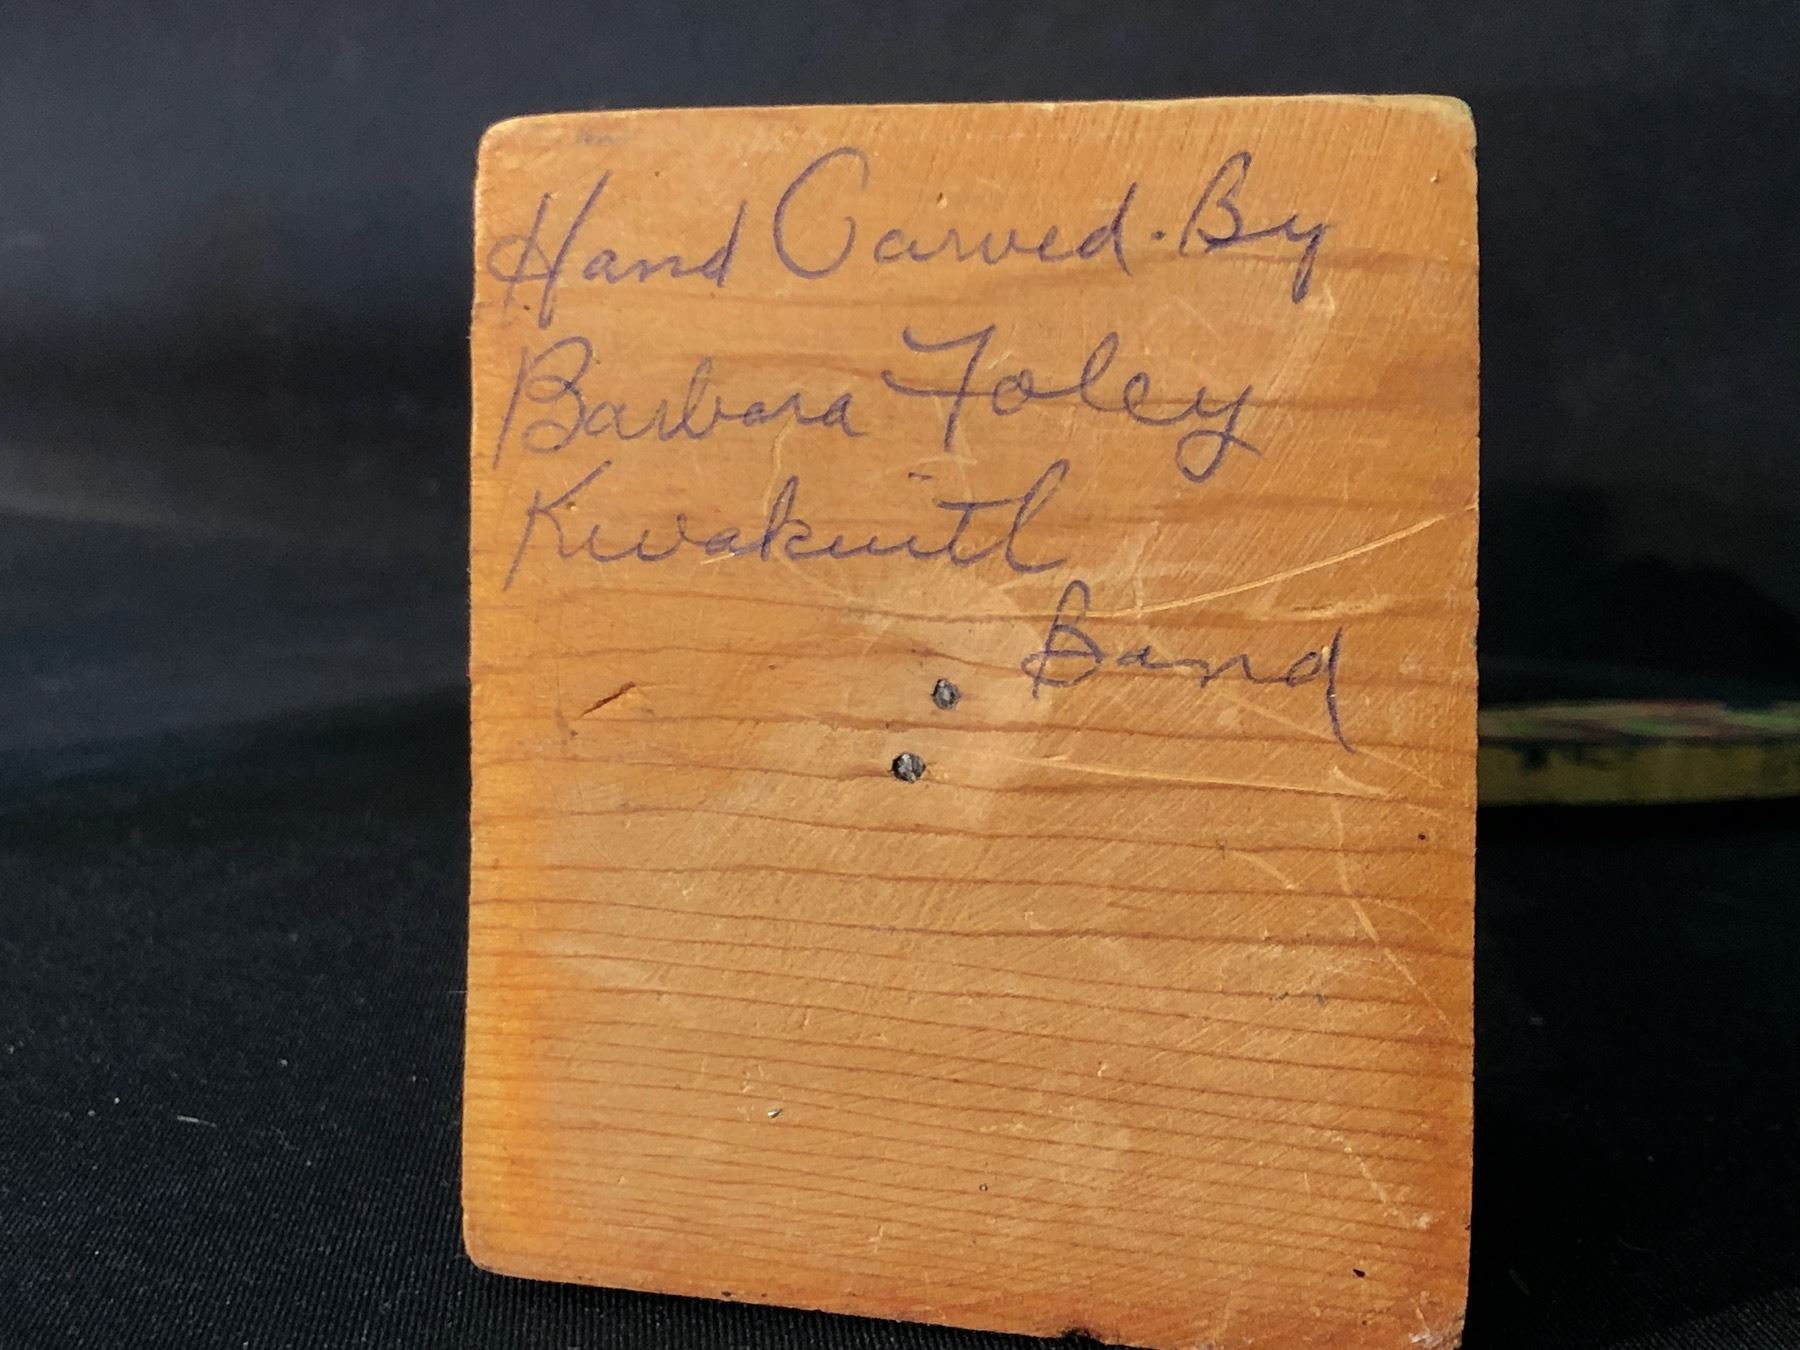 Hand Carved. By
Barbara Foley
Kwakuitl
Band